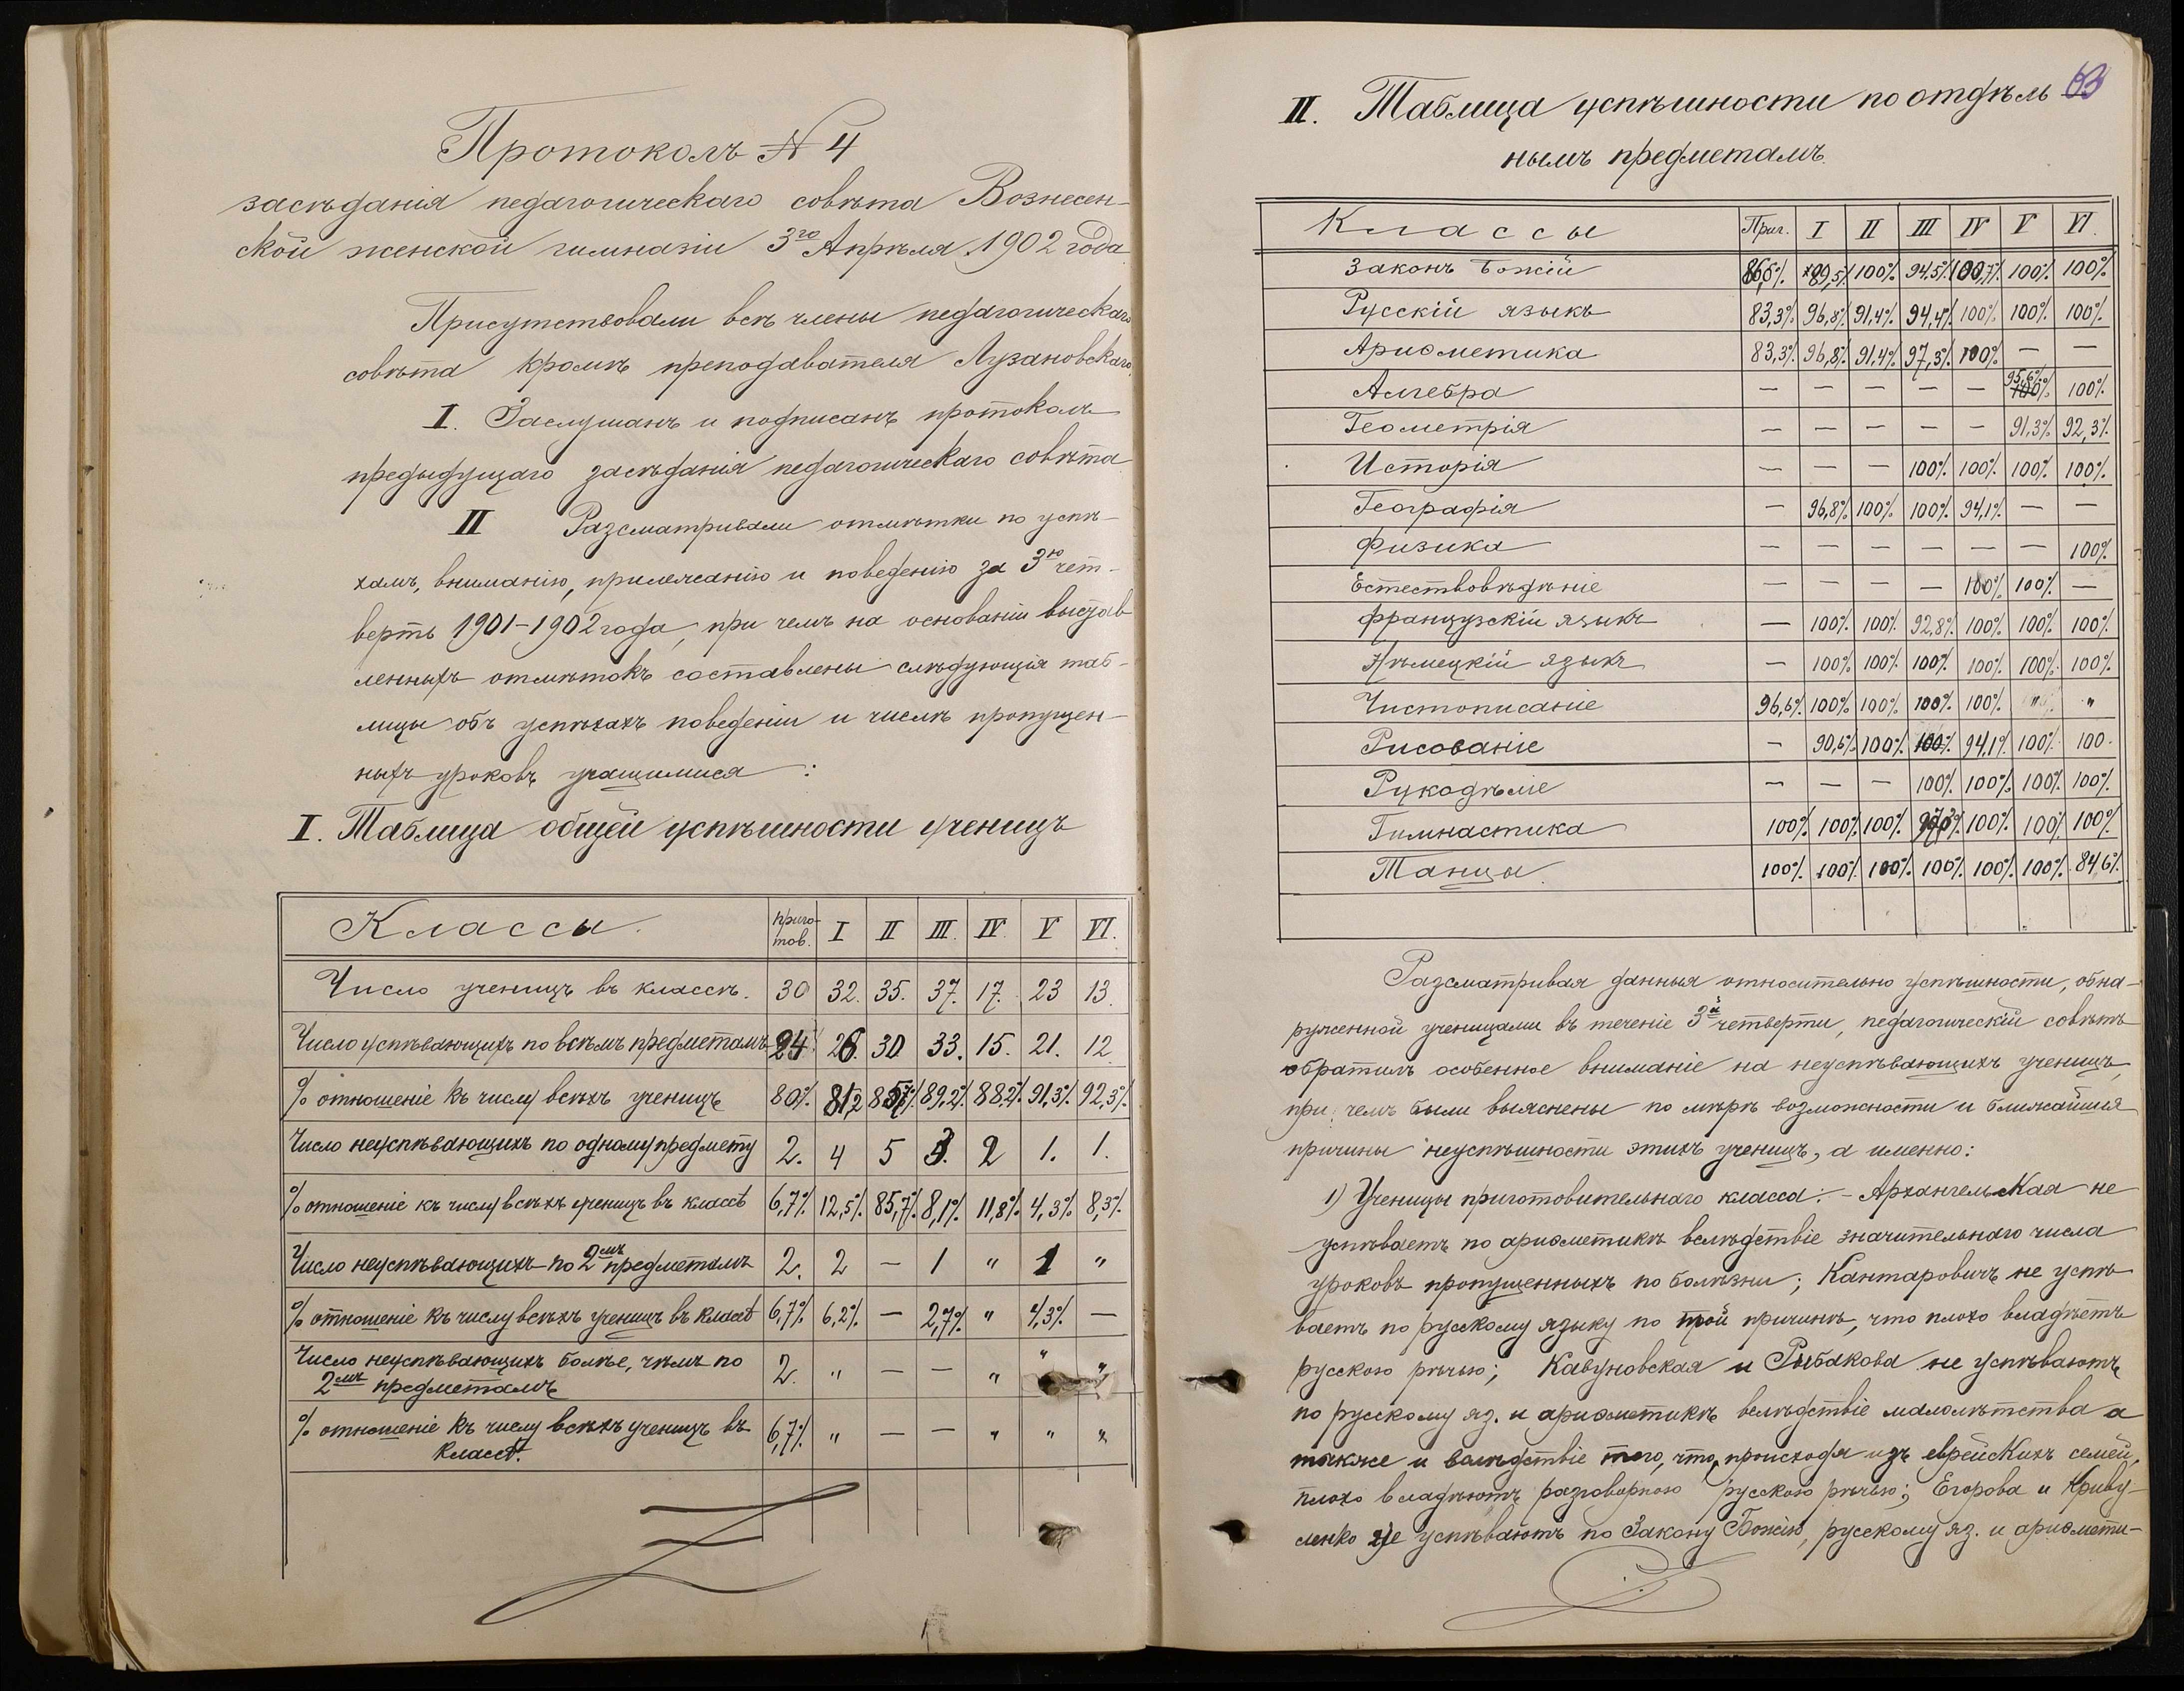 Протоколъ № 4
засѣданія педагогическаго совѣта Вознесен-
ской женской гимназіи 3го Апрѣля 1902 года
Присутствовали всѣ члены педагогическаго
совѣта кромѣ преподавателя Лузановскаго.
I. Заслушанъ и подписанъ протоколъ
предыдущаго засѣданія педагогическаго совѣта
II Разсматривали отмѣтки по успѣ-
хамъ, вниманію, прилежанію и поведенію за 3ю чет-
верть 1901-1902 года, при чемъ на основаніи выстав
ленныхъ отмѣтокъ составлены слѣдующія таб-
лицы объ успѣхахъ поведеніи и числѣ пропущен-
ныхъ уроковъ учащимися :
I. Таблица общей успѣшности ученицъ
Классы. пригo-тов. I II III. IV. V VI.
Число ученицъ въ классѣ. 30 32. 35. 37. 17. 23 13.
Число успѣвающихъ по всѣмъ предметамъ 24 26. 30 33. 15. 21. 12
% отношеніе къ числу всѣхъ ученицъ 80%. 81,2 85,7% 89,2% 88,2% 91,3% 92,3%
Число неуспѣвающихъ по одному предмету 2. 4 5 3. 2 1. 1.
% отношеніе къ числу всѣхъ ученицъ въ классѣ 6,7% 12,5% 85,7% 8,1% 11,8% 4,3% 8,3%
Число неуспѣвающихъ по 2мъ предметамъ 2. 2 — 1 " 1 "
% отношеніе къ числу всѣхъ ученицъ въ классѣ 6,7% 6,2% — 2,7% " 4,3% —
Число неуспѣвающихъ болѣе, чѣмъ по
2мъ предметамъ 2. " — — " " "
% отношеніе къ числу всѣхъ ученицъ въ
классѣ. 6,7% " — — " " "
II. Таблица успѣшности по отдѣль
нымъ предметамъ.
Классы Приг. I II III IV V VI.
Законъ Божій 86,6% 89,5% 100% 94.5% 100% 100%
Русскій языкъ 83,3% 96,8% 91,4% 94,4% 100% 100% 100%
Ариѳметика 83,3% 96,8% 91,4% 97,3% 100% — —
Алгебра — — — — — 95,6% 100%
Геометрія — — — — — 91,3% 92,3%
Исторія — — — 100% 100% 100% 100%
Географія — 96,8% 100% 100% 94,1% — —
Физика — — — — — — 100%
Естествовѣдѣніе — — — — 100% 100% —
Французскій языкъ — 100% 100% 92,8% 100% 100% 100%
Нѣмецкій языкъ — 100% 100% 100% 100% 100% 100%
Чистописаніе 96,6% 100% 100% 100% 100% " "
Рисованіе — 90,6% 100% 100% 94,1% 100% 100.
Рукодѣліе — — — 100% 100% 100% 100%
Гимнастика 100% 100% 100% 100% 100% 100%
Танцы. 100% 100% 100% 100% 100% 100% 84,6%
Разсматривая данныя относительно успѣшности, обна-
руженной ученицами въ теченіе 3й четверти, педагогическій совѣтъ
обратилъ особенное вниманіе на неуспѣвающихъ ученицъ,
при чемъ были выяснены по мѣрѣ возможности и ближайшія
причины неуспѣшности этихъ ученицъ, а именно:
1) Ученицы приготовительнаго класса: – Архангельская не
успѣваетъ по ариѳметикѣ вслѣдствіе значительнаго числа
уроковъ пропущенныхъ по болѣзни; Кантаровичъ не успѣ
ваетъ по русскому языку по той причинѣ, что плохо владѣетъ
русскою рѣчью; Кавуновская и Рыбакова не успѣваютъ
по русскому яз. и ариѳметикѣ вслѣдствіе малолѣтства а
также и вслѣдствіе того, что, происходя изъ еврейскихъ семей,
плохо владѣютъ разговорною русскою рѣчью; Егорова и Криву-
ленко не успѣваютъ по Закону Божію, русскому яз. и ариѳмети-